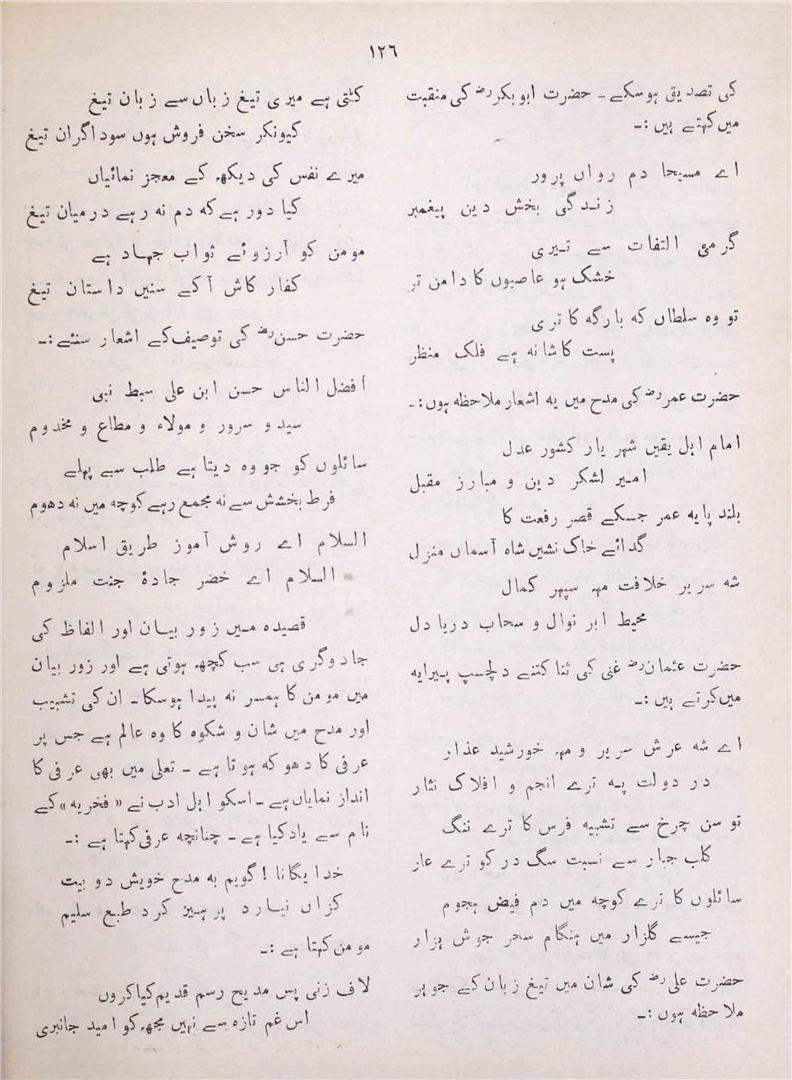 ١٢٦
کی تصدیق ہوسکے ۔ حضرت ابوبکر رضؓ کی منقبت
میں کہتے ہیں :۔
اے مسیحا دم رواں پرور
زندگی بخش دین پیغمبر
گرمئ التفات سے تیری
خشک ہو عاصیوں کا دامن تر
تو وہ سلطاں کہ بارگہ کا تری
پست کاشانہ ہے فلک منظر
حضرت عمر رضؓ کی مدح میں یہ اشعار ملاحظہ ہوں :۔
امام اہل یقیں شہر یار کشور عدل
امیر لشکر دین و مبارز مقبل
بلند پایہ عمر جسکے قصر رفعت کا
گدائے خاک نشیں شاہ آسماں منزل
شہ سریر خلافت مہہ سپہر کمال
محیط ابر نوال و سحاب دریا دل
حضرت عثمان رضؓ غنی کی ثنا کتنے دلچسپ پیرایہ
میں کرتے ہیں :۔
اے شہ عرش سریر و مہہ خورشید عذار
در دولت پہ ترے انجم و افلاک نثار
تو سن چرخ سے تشبیہ فرس کا ترے ننگ
کلب جبار سے نسبت سگ در کو ترے عار
سائلوں کا ترے کوچہ میں دم فیض ہجوم
جیسے گلزار میں ہنگام سحر جوش ہزار
حضرت علی رضؓ کی شان میں تیغ زبان کے جوہر
ملاحظہ ہوں :۔
کٹتی ہے میری تیغ زباں سے زبان تیغ
کیونکر سخن فروش ہوں سوداگران تیغ
میرے نفس کی دیکھہ کے معجز نمائیاں
کیا دور ہے کہ دم نہ رہے درمیان تیغ
مومن کو آرزوئے ثواب جہاد ہے
کفار کاش آکے سنیں داستان تیغ
حضرت حسن رضؓ کی توصیف کے اشعار سنئے :۔
افضل الناس حسن ابن علی سبط نبی
سید و سرور و مولاء و مطاع و مخدوم
سائلوں کو جو وہ دیتا ہے طلب سے پہلے
فرط بخشش سے نہ مجمع رہے کوچہ میں نہ دھوم
السلام اے روش آموز طریق اسلام
السلام اے خضر جادۂ جنت ملزوم
قصیدہ میں زور بیان اور الفاظ کی
جادوگری ہی سب کچھہ ہوتی ہے اور زور بیان
میں مومن کا ہمسر نہ پیدا ہوسکا ۔ ان کی تشبیب
اور مدح میں شان و شکوہ کا وہ عالم ہے جس پر
عرفی کا دھوکہ ہوتا ہے ۔ تعلی میں بھی عرفی کا
انداز نمایاں ہے ۔ اسکو اہل ادب نے «فخریہ» کے
نام سے یاد کیا ہے ۔ چنانچہ عرفی کہتا ہے :۔
خدا یگانا ! گویم بہ مدح خویش دو بیت
کزاں نیارد پرہیز کرد طبع سلیم
مومن کہتا ہے :۔
لاف زنی پس مدیح رسم قدیم کیا کروں
اس غم تازہ سے نہیں مجھہ کو امید جانبری